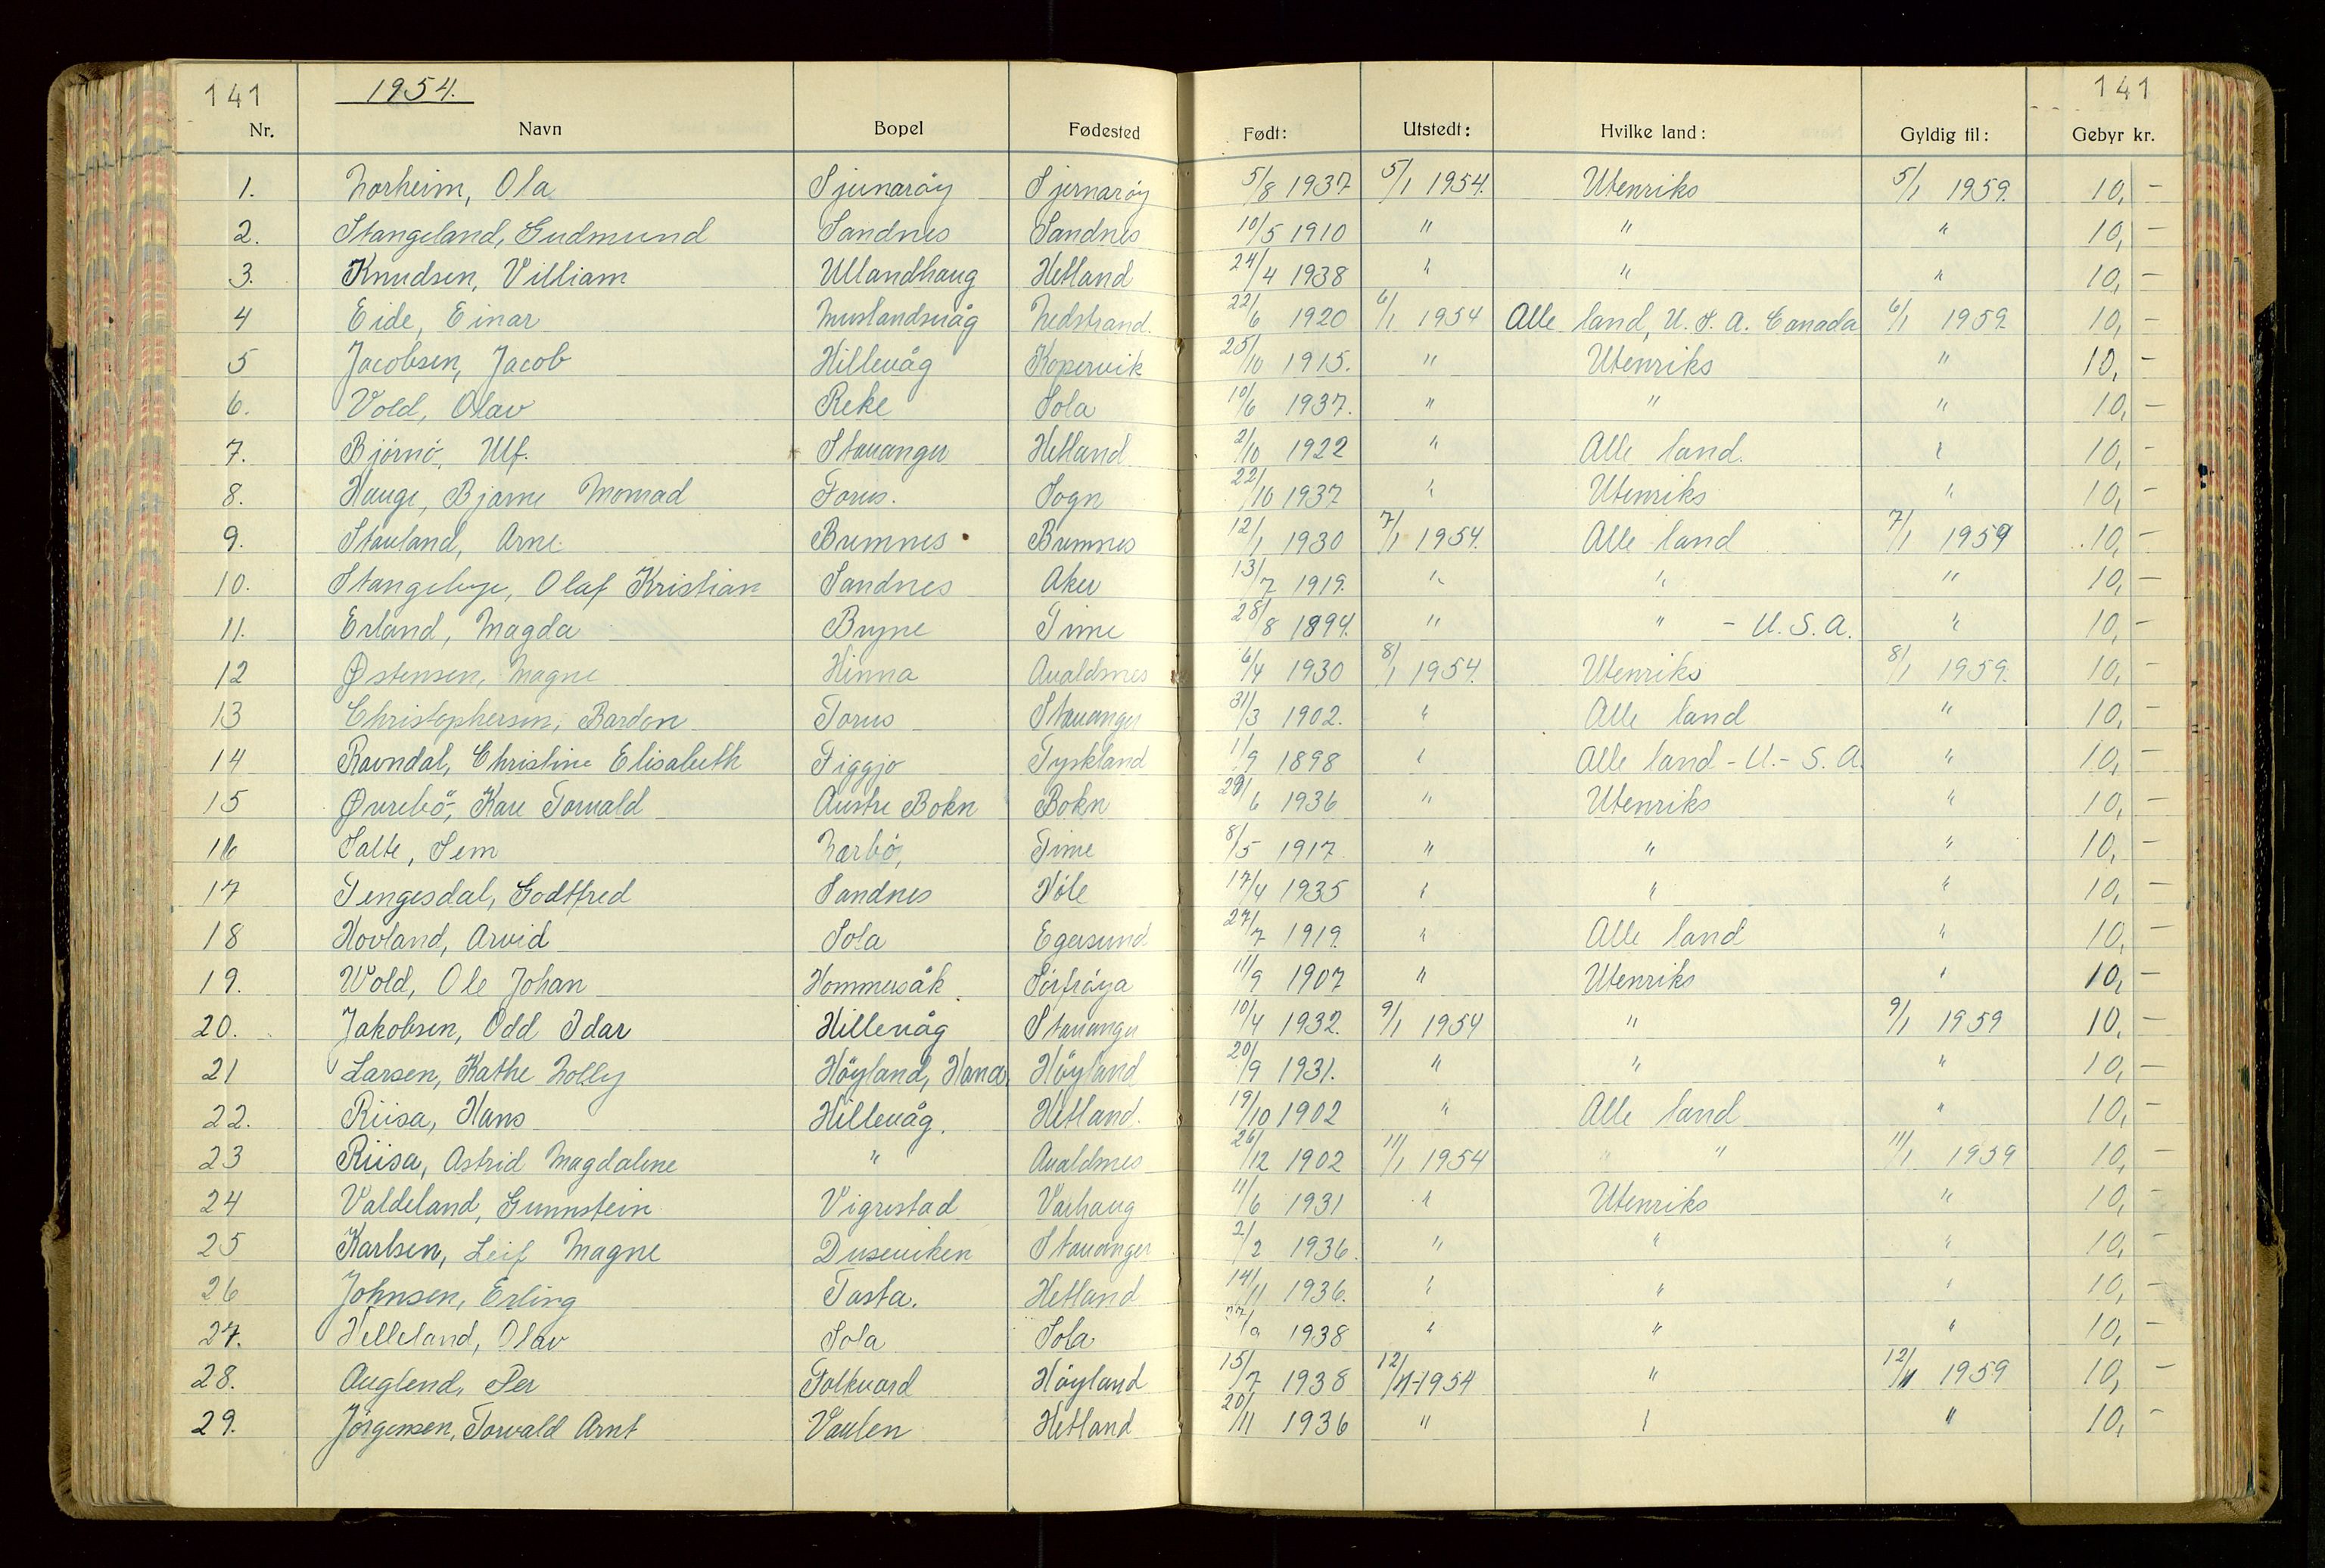 141 1954. 141
Nr. Navn Bopel Fødested Født: Utstedt: Hvilke land: Gyldig til: Gebyr kr.
1. Norheim, Ola Sjernaröy Sjernaröy 5/8 1937 5/1 1954. Utenriks 5/1 1959. 10, -
2. Stangeland, Gudmund Sandnes Sandnes 10/5 1910 " " " 10, -
3. Knudsen, Villiam Ullandhaug Hetland 24/4 1938 " " " 10, -
4 Eide, Einar Nedstrand. 22/6 1920 6/1 1954 Alle land, U. S. A. Canada 6/1 1959. 10, -
5 Jacobsen, Jacob Hillevåg Kopervik 25/10 1915. " Utenriks " 10, -
6. Vold, Olav Reke Sola 10/6 1937. " " " 10, -
7. Björnö, Ulf. Stavanger Hetland 2/10 1922 " Alle land. " 10, -
8. Hauge, Bjarne Monrad Forus. Sogn 22/10 1937 " Utenriks " 10, -
9. Stavland, Arne Bremnes Bremnes 12/1 1930 7/1 1954. Alle land 7/1 1959 10, -
10. Stangebye, Olaf Kristian Sandnes Aker 13/7 1919. " " " 10, -
11. Erland, Magda Bryne Time 28/8 1894. " " - U. S. A. " 10, -
12 Østensen, Magne Hinna Avaldsnes 6/4 1930 8/1 1954. Utenriks 8/1 1959. 10, -
13 Christophersen, Bardon Forus Stavanger 31/3 1902. " Alle land " 10, -
14 Ravndal, Christine Elisabeth Figgjo Tyskland 1/9 1898 " Alle land - U. - S. A. " 10, -
15 Øvrebö, Kare Torvald Austre Bokn Bokn 29/6 1936 " Utenriks " 10, -
16 Salte, Sem Narbö, Time 8/5 1917 " " " 10, -
17 Tengesdal, Godtfred Sandnes Höle 17/4 1935 " " " 10, -
18 Hovland, Arvid Sola Egersund 27/7 1919. " Alle land " 10, -
19. Wold, Ole Johan Hommersåk Sörfröya 11/9 1907 " Utenriks " 10, -
20. Jakobsen, Odd Idar Hillevåg Stavanger 10/4 1932. 9/1 1954 " 9/1 1959 10. -
21 Larsen, Kathe Nolly Höyland, Hana Höyland 20/9 1931. " " " 10, -
22. Riisa, Hans Hillevåg. Hetland. 19/10 1902 " Alle land " 10, -
23 Riisa, Astrid Magdalene " Avaldsnes 26/12 1902 11/1 1954 " " 11/1 1959 10, -
24 Valdeland, Gunnstein Vigrestad Varhaug 11/6 1931 " Utenriks " 10, -
25 Karlsen, Leif Magne Duseviken Stavanger 2/2 1936. " " " 10, -
26 Johnsen, Erling Tasta. Hetland 14/11 1936. " " " 10, -
27. Helleland, Olav Sola Sola 1938 " " " 10, -
28. Auglend, Per Folkvord Höyland 15/7 1938 12/1-1954 " 12/1 1959 10, -
29. Jörgensen, Torvald Arnt Vaulen Hetland 20/11 1936 " " " 10, -